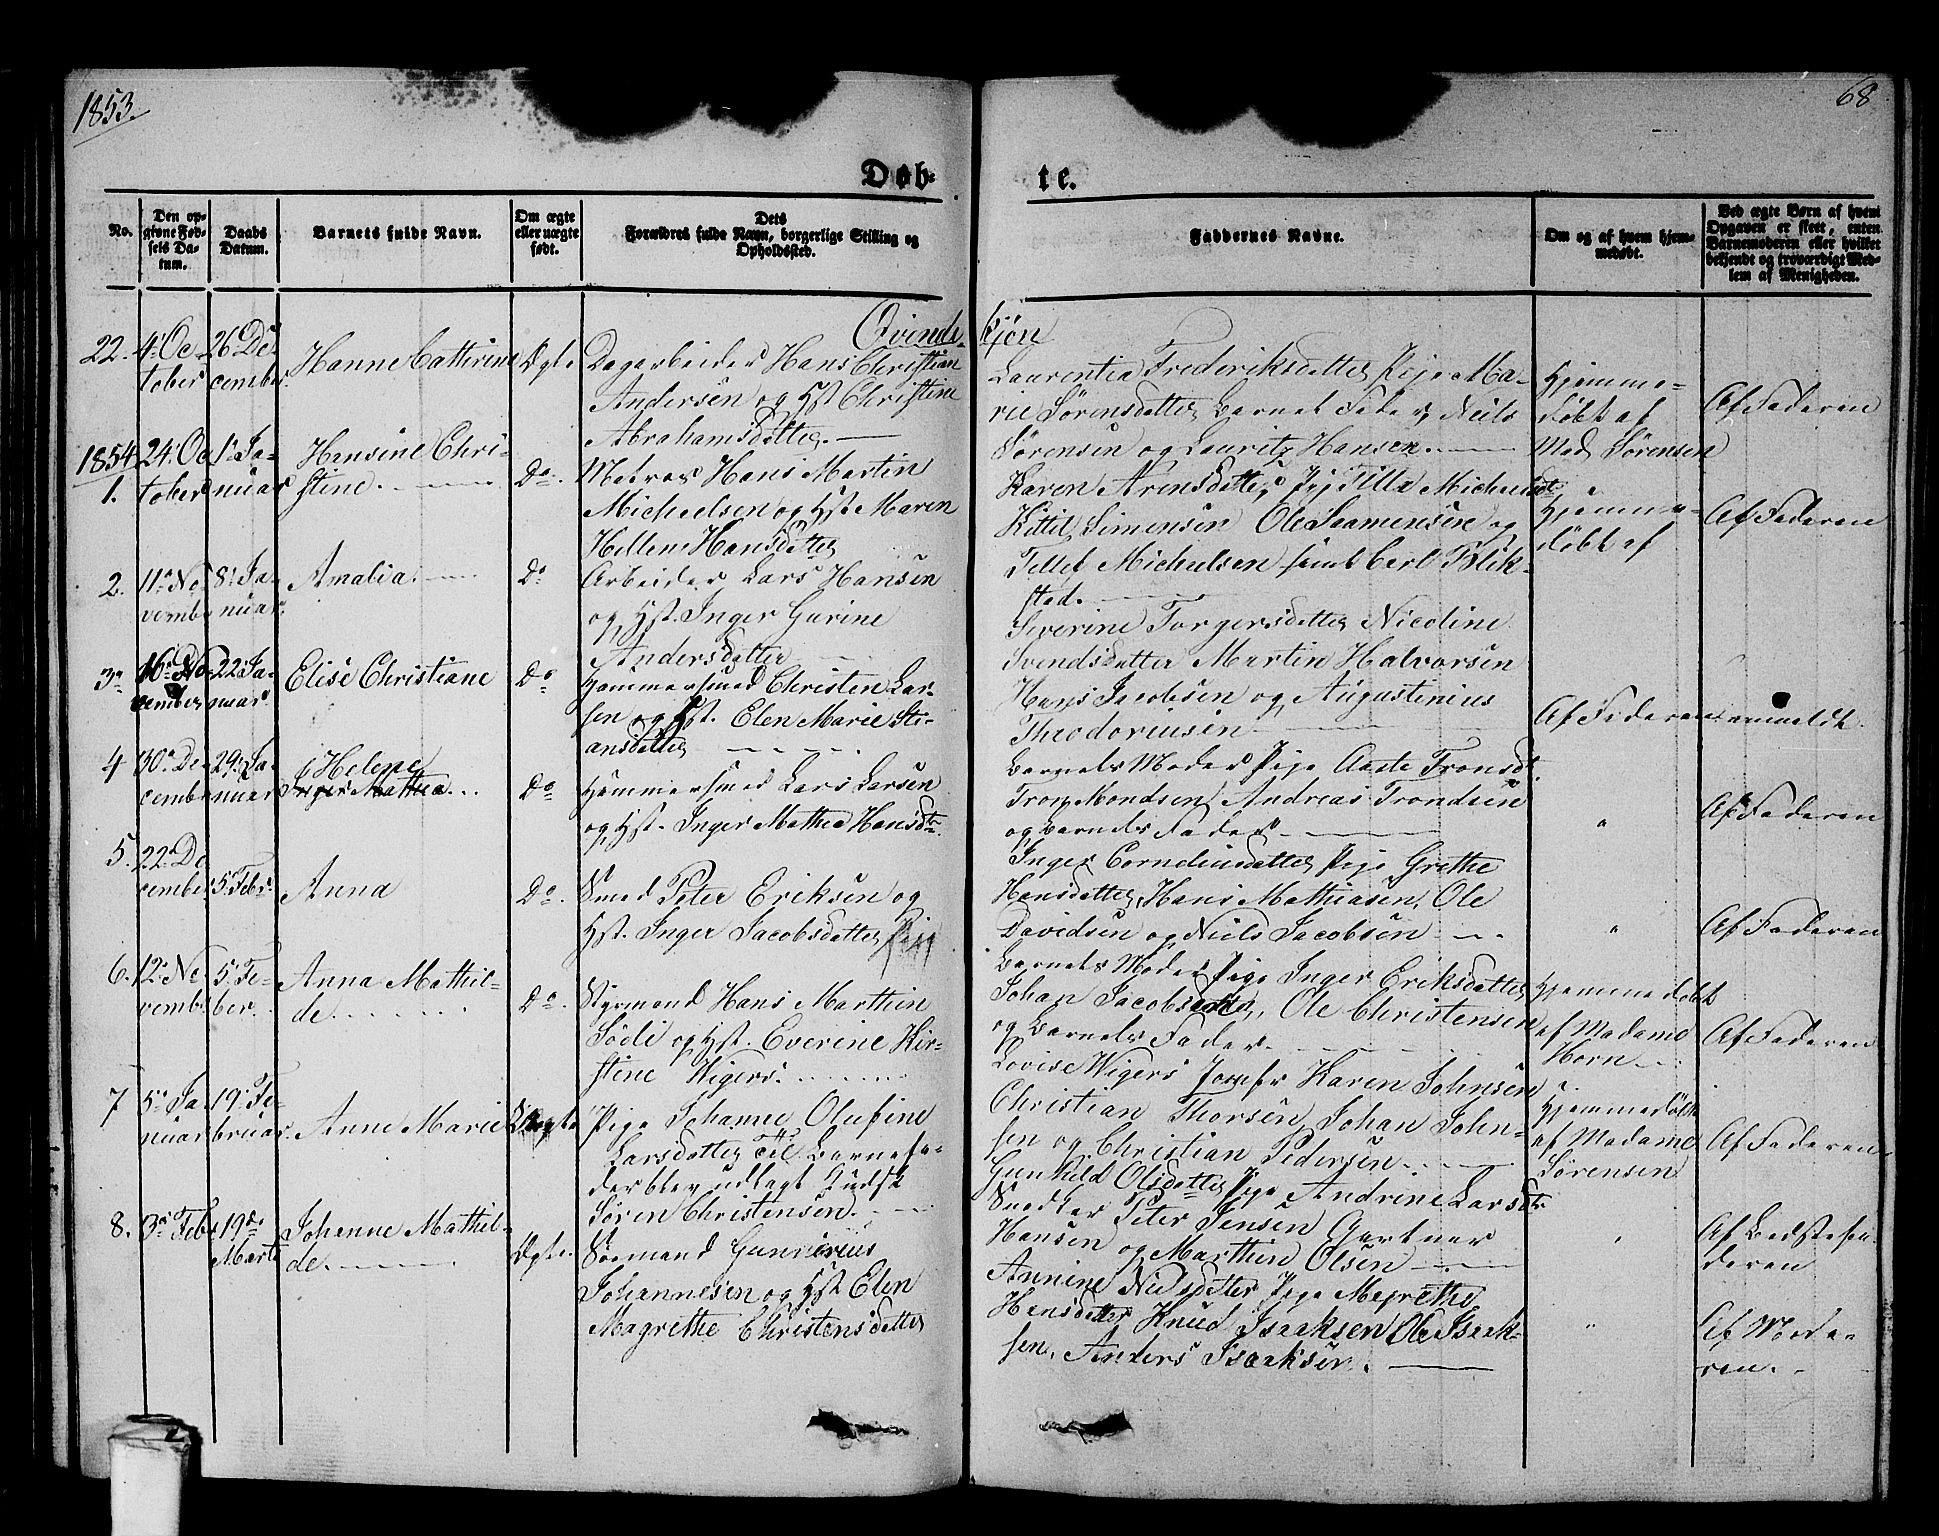 1853.
68
Døb-
te.
No.
Den op-
givne Fød-
sels Da-
tum.
Daabs
Datum.
Barnets fulde Navn.
Om ægte
eller uægte
født.
Dets
Forældres fulde Navn, borgerlige Stilling og
Opholdssted.
Faddernes Navne.
Om og af hvem hjem-
medøbt.
Ved ægte Børn af hvem
Opgaven er skeet, enten
Barnemoderen eller hvilket
bekjendt og troværdigt Med-
lem af Menigheden.
Qvinde-
kjøn
22.
4de Oc-
tober
26 De-
cember.
Hanne Cathrine
Ægte
Dagarbeider Hans Christian
Andersen og Hst Christine
Abrahamsdatter.
Laurentia Frederiksdatter Pige Ma-
rie Sørensdatter Barnet Fader, Niels
Sørensen og Lauritz Hansen.
Hjemme-
døbt af
Mad Sørensen
Af Faderen
1854
1.
24. Oc
tober
1. Ja-
nuar
Hansine Chri-
stine.
Do.
Matros Hans Martin
Michaelsen og Hst Maren
Hellene Hansdatter
Karen Arensdatter
Kittil Simensen Ole Saamensen og
Tellef Michaelsen samt Carl Blik-
stad.
Hjemme-
døbt af
Af Faderen
2.
11. No
vemb
8. Ja-
nuar.
Amalia.
Do
Arbeider Lars Hansen
og Hst. Inger Gurine
Andersdatter
Severine Torgersdatter Nicoline
Svendsdatter Martin Halvorsen
Hans Jacobsen og Augustinius
Theodoriusen
Af Faderen anmeldt.
3.
16. No
vember
22. Ja-
nuar.
Elise Christiane
Do
Hammersmed Christen Lar-
sen og Hst. Elen Marie Sti-
ansdatter
Barnets Moder Pige Aaste Tronsdt.
Tron Mondsen, Andreas Trondsen
og Barnets Fader
Af Faderen
4
30. De-
cemb
29. Ja-
nuar
Helene
Inger Mathea
Do
Hammersmed Lars Larsen
og Hst. Inger Mathea Hansdtr.
Inger Corneliusdatter Pige Grethe
Hansdatter, Hans Mathiasen, Ole
Davidsen og Niels Jacobsen
Af Faderen
5.
22. De
cember
5. Febr.
Anna
Do.
Smed Peter Eriksen og
Hst. Inger Jacobsdatter
Barnets Moder Pige Inger Eriksdatter
Johan Jacobsen, Ole Christensen
og Barnets Fader.
Hjemme døbt
af Madame
Horn
Af Faderen
6.
12. No-
vemb
5. Fe-
ber.
Anna Mathil-
de
Do.
Styrmand Hans Marthin
Södli og Hst. Everine Kir-
stine Wigers.
Lovise Wigers Jomfr Karen Johnsen
Christian Thorsen, Johan John-
sen og Christian Pedersen
Hjemmedøbt
af Madame
Sørensen
Af Faderen
7
5. Ja-
nuar
19. Fe-
bruar.
Anne Marie
Uægte
Pige Johanne Olufine
Larsdatter Til Barnefa-
der blev udlagt Landsk
Søren Christensen.
Gunhild Olsdatter Pige Andrine Larsdtr
Snedker Peter Jensen Gartner
Hansen og Marthin Olsen
Af Bedstefa-
deren
8.
3. Feb.
19de
Marts
Johanne Mathil-
de.
Ægte.
Sømand Gunerius
Johannesen og Hst Elen
Magrethe Christensdatter
Annine Nielsdatter Pige Magrethe
Hansdatter Knud Isaksen Ole Isaak-
sen, Anders Isaksen.
Af Mode-
ren.